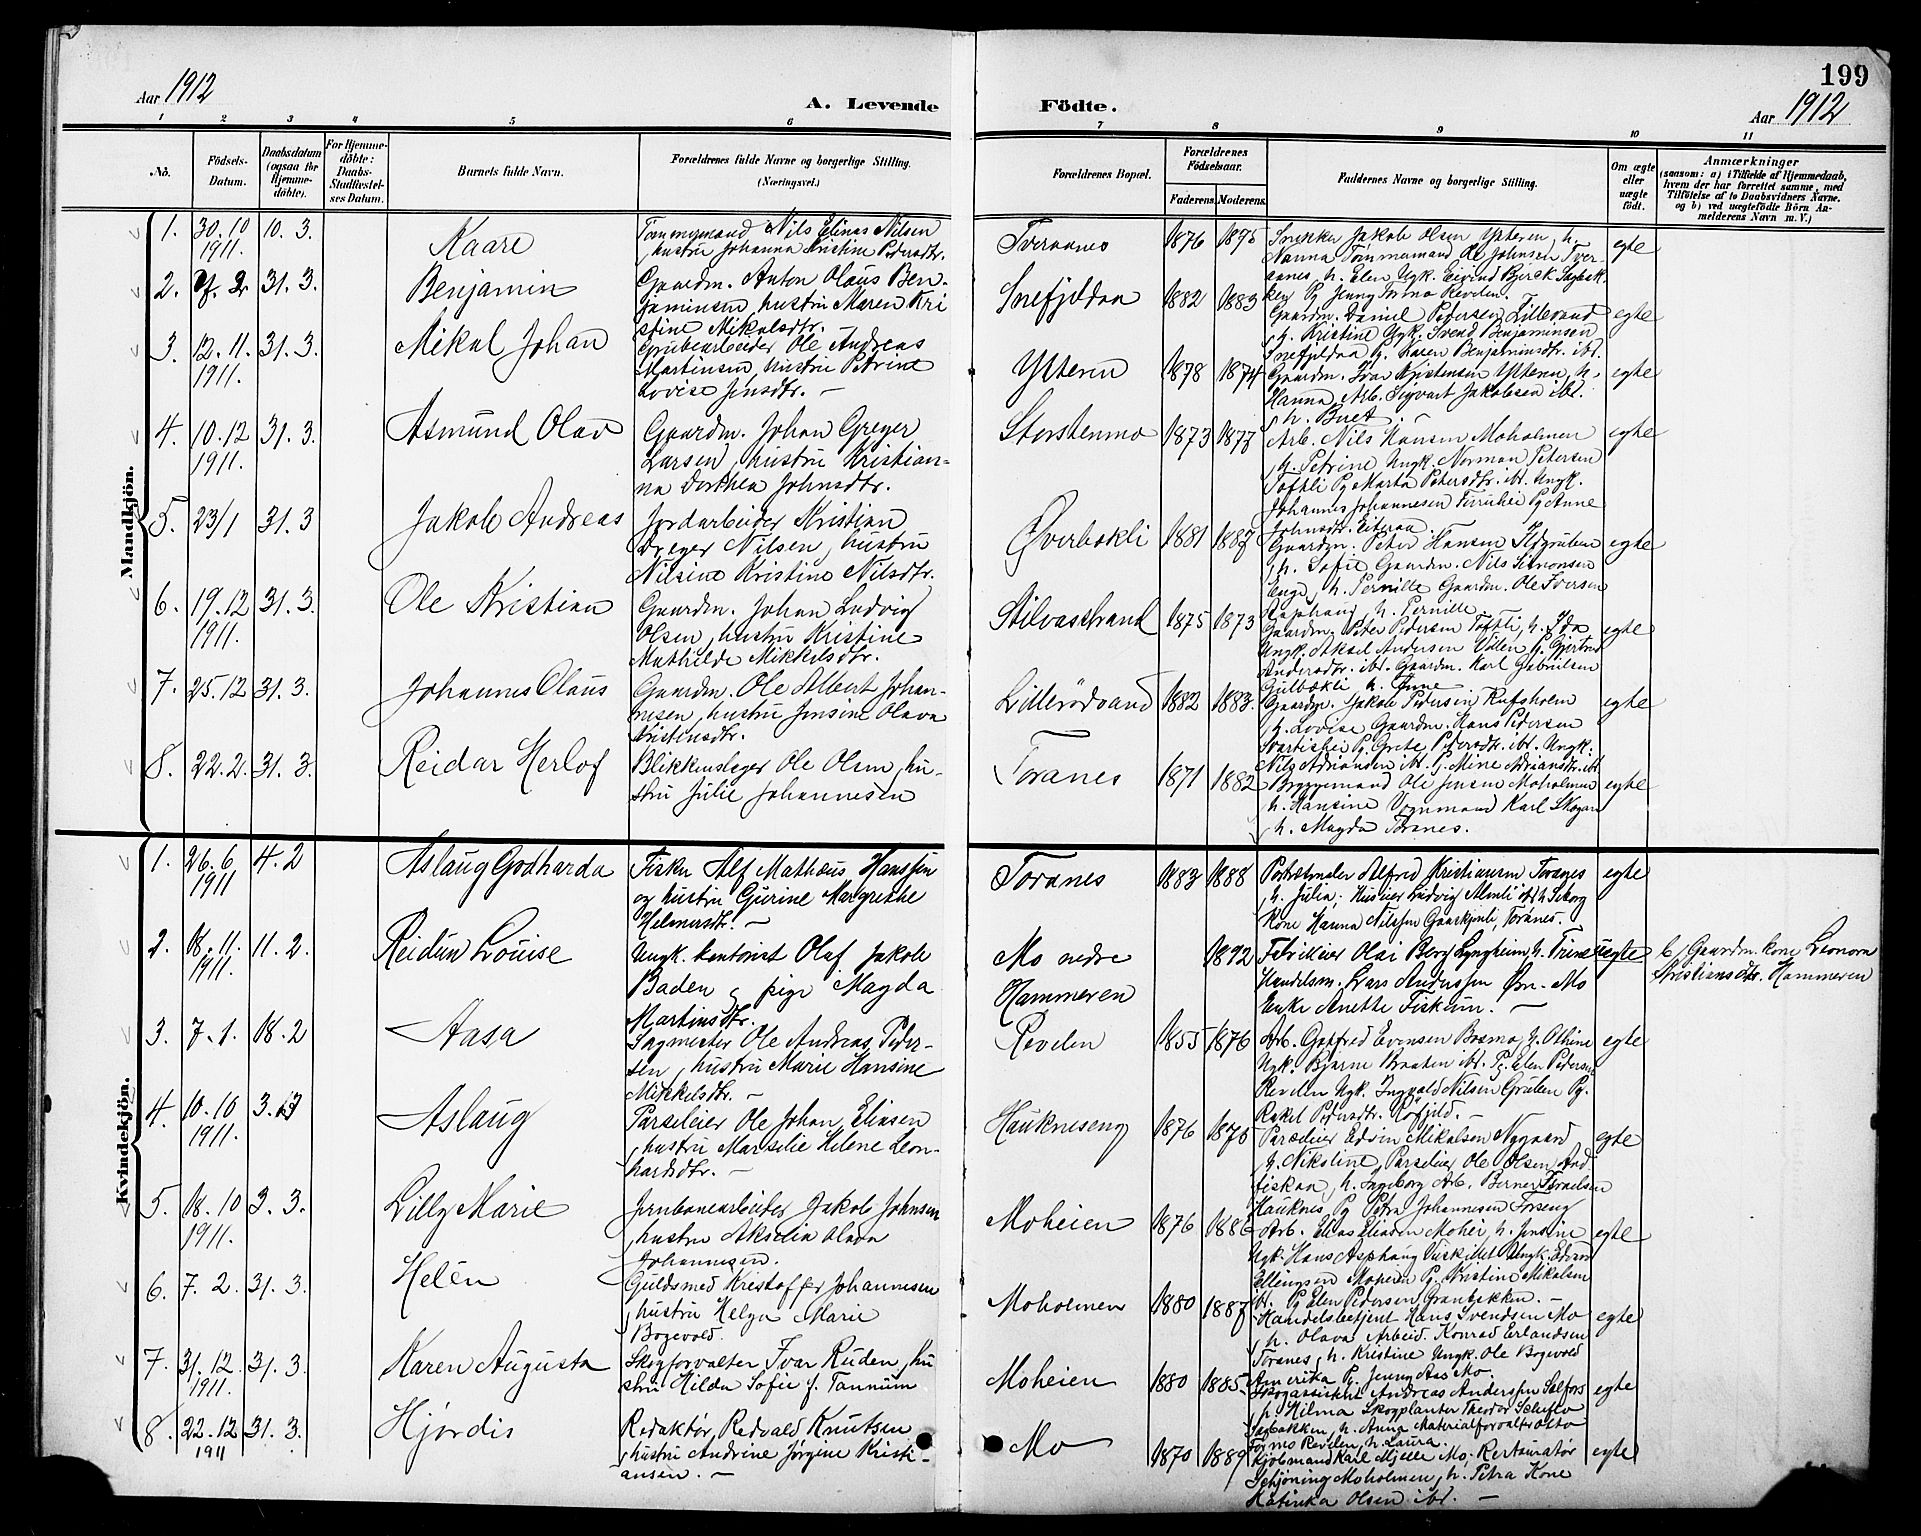 199
Aar 1912
A. Levende Födte.
Aar 1912
1 2 3 4 5 6 7 8 9 10 11
No.
Födsels-
Datum.
Daabsdatum
(ogsaa for
Hjemme-
döbte).
For Hjemme-
döbte:
Daabs-
Stadfæstel-
ses Datum.
Barnets fulde Navn.
Forældrenes fulde Navne og borgerlige Stilling.
(Næringsvei.)
Forældrenes Bopæl.
Forældrenes
Födselsaar.
Faderens. Moderens.
Faddernes Navne og borgerlige Stilling.
Om ægte
eller
uægte
födt.
Anmærkninger
(saasom: a) i Tilfælde af Hjemmedaab,
hvem der har forrettet samme, med
Tilföielse af to Daabsvidners Navne,
og b) ved uægtefödte Börn An-
melderens Navn m. V.)
Mandkjön.
1. 30.10 1911. 10. 3. Kaare
Tommymand Nils Elinas Nilsen
, hustru Johanna Kristine Pedersdtr.
Tveraanes 1876 1875
Snekker Jakob Olsen Ytteren, h.
Nanna Tommemand Ole Johnsen Tver-
aanes, h. Elen Ugk. Eivind Bjerk Sagbak-
ken Pg Jenny Tormo Revelen.
egte
2. 31. 3. Benjamin
Gaardm. Anton Olaus Ben-
jaminsen, hustru Maren Kri
stine Mikalsdtr.
Snefjeldaa 1882 1883
Gaardm. Daniel Pedersen Lillevand
, h. Kristine Ugk. Svend Benjaminsen
Snefjeldaa Pg. Karen Benjaminsdtr. ibd.
egte
3. 12. 11. 1911. 31. 3. Mikal Johan
Grubearbeider Ole Andreas
Martinsen, hustru Petrine
Lovise Jensdtr. —
Ytteren 1878 1874
Gaardm. Ivar Kristensen Ytteren, h.
Hanna, Arb. Sigvart Jakobsen ibd.
, h. Beret
egte
4. 10. 12 1911. 31. 3. Asmund Olav
Gaardm. Johan Greger
Larsen, hustru Kristian-
na Dorthea Johnsdtr.
Storstenmo 1873 1877
Arb. Nils Hansen Moholmen
, h. Petrine Ungk. Norman Petersen
Toftli Pg Marta Petersdtr. ibd. Ungk.
Johannes Johannesen Furuhei Pg Anne
Johnsdtr. Eiteraa.
egte
5. 23/1 31. 3 Jakob Andreas
Jordarbeider Kristian
Dreyer Nilsen, hustru
Nilsine Kristine Nilsdtr.
Øverbakli 1881 1887
Gaardm. Peter Hansen Ildgruben
, h. Sofie Gaardm. Nils Simonsen
Enge, h. Pernille Gaardm. Ole Iversen
, h. Pernille
egte
6. 19. 12 1911. 31. 3. Ole Kristian
Gaardm. Johan Ludvig
Olsen, hustru Kristine
Mathilde Mikkelsdtr.
Stilvasstrand 1875 1873
Gaardm. Peter Pedersen Toftli, h. Ida
Ungk. Aksel Andersen Villen Pg. Gjertrud
Andersdtr. ibd. Gaardm. Karl Gabrielsen
Gulbakli h. Anne
egte
7. 25. 12 31. 3. Johannes Olaus
Gaardm. Ole Albert Johan-
nesen, hustru Jensine Olava
Kristensdtr.
Lillerödvand 1882 1883.
Gaardm. Jakob Pedersen Rufsholm
, h. Lovise Gaardm. Hans Pedersen
Svartishei Pg. Grete Pedersdtr. ibd. Ungk.
Nils Adriansen ibd. Pg. Mine Adriansdtr. ibd.
egte
8. 22. 2. 31. 3. Reidar Herlof
Blikkenslager Ole Olsen, hu-
stru Julie Johannesen
Toranes 1871 1882
Bryggemand Ole Jensen Moholmen
h. Hansine Vognmand Karl Skogan
, h. Magda Toranes.
egte
Kvindekjön.
1. 26. 6 1911 4. 2 Aslaug Godharda
Fisker Alf Mathæus Hanssen
og hustru Gurine Margrethe
Helmersdtr. —
Toranes 1883 1888
Portrætmaler Alfred Kristiansen Toranes
, h. Julia; Husier Ludvig Almli ibd. h. Solvorg
Kone Hanna Nilssen Gaarkjenli, Toranes.
egte
2. 18. 11. 1911. 11. 2. Reidun Louise
Ungk. kontorist Olaf Jakob
Baden og pige Magda
Martinsdtr.
Mo nedre
Hammeren
1892
Fabrikeier Olai Berg Lyngheim, h. Trine
Handelsm. Lars Anderssen Øvr. Mo
Enke Anette Fiskum. —
uegte
b, Gaardm. kone Leonora
Kristiansdtr. Hammeren
3. 7. 1. 18. 2 Aasa
Sagmester Ole Andreas Peder-
sen, hustru Marie Hansine
Mikkelsdtr. —
Revelen 1855 1876
Arb. Gotfred Evensen Bosmo, h. Othine
Ugk. Bjarne Braaten ibd. Pg. Elen Pedersen
Revelen Ugk. Ingvald Nilsen Gruben Pg.
Rakel Pedersdtr. Röfjeld. —
egte
4. 10. 10 1911. 3. 3 Aslaug
Parseleier Ole Johan Eliasen
, hustru Marselie Helene Leon-
hardsdtr. —
Haukneseng 1876 1875
Parseleier Edvin Mikalsen Nygaard
, h. Nikoline, Parseleier Ole Olsen And-
fiskaa, h. Ingeborg Arb. Berner Tornelsen
Hauknes Pg Petra Johannesen Forseng
egte
5. 18. 10 1911. 3. 3. Lilly Marie
Jernbanearbeider Jakob Johnsen
, hustru Akselia Olava
Johannesen.
Moheien 1876 1886
Arb. Elias Eliasen Mohei, h. Jensine
Ugk. Hans Asphaug Ungk. Edvard
Ellingsen Moheien Pg. Kristine Mikalsen
ibd. Pg Elen Pedersen Granbakken. —
egte
6. 7. 2. 31. 3. Helén
Guldsmed Kristoffer Johannesen
, hustru Helga Marie
Bogevold.
Moholmen 1880 1887
Handelsbetjent Hans Svendsen Mo
, h. Olava Arbeid. Konrad Erlandsen
Toranes, h. Kristine Ungk. Ole Bogevold
Amerika Pg. Jenny Aas Mo.
egte
7. 31. 12. 1911. 31. 3. Karen Augusta
Skogforvalter Ivar Ruden, hu
stru Hilda Sofie f. Tannum
Moheien 1880 1885
Skogassistent Andreas Anderssen Selfors
, h. Hilma Skogplanter Theodor
Sagbakken, h. Anna Materialforvalter Otto
Tormo Revelen, h. Laura
egte
8. 22. 12 1911 31. 3. Hjørdis
Redaktør, Redvald Knutsen
, hustru Andrine Jørgine Kristi-
ansen. —
Mo 1870 1889
Kjöbmand Karl Mjelle Mo, Restauratör
Schjöning Moholmen, h. Petra Kone
Katinka Olsen ibd. —
egte